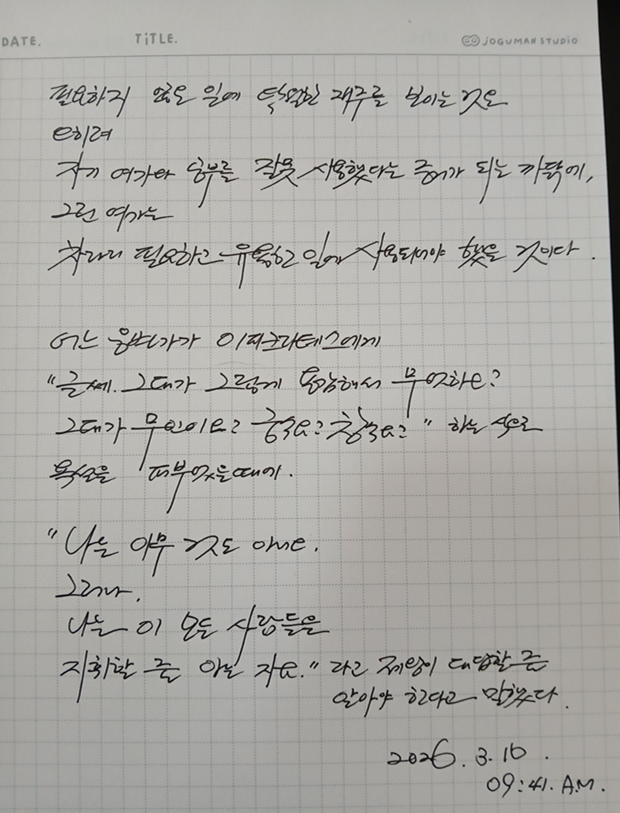 DATE.
TiTLE.
JOGUMAN STUDIO
필요하지 않은 일에 탁월한 재주를 보이는 것은
오히려
자기 여가와 공부를 잘못 사용했다는 증거가 되는 까닭에,
그런 여가는
차라리 필요하고 유용한 일에 사용되어야 했을 것이다.
어느 웅변가가 이피크라테스에게
"글쎄. 그대가 그렇게 용감해서 무엇하오?
그대가 무인이오? 궁수요? 창수요?" 하는 식으로
욕설을 퍼부었을때에.
"나는 아무 것도 아니오.
그러나.
나는 이 모든 사람들을
지휘할 줄 아는 자요." 라고 제왕이 대답할 줄
알아야 한다고 말했다.
2026. 3. 16.
09:41. A.M.